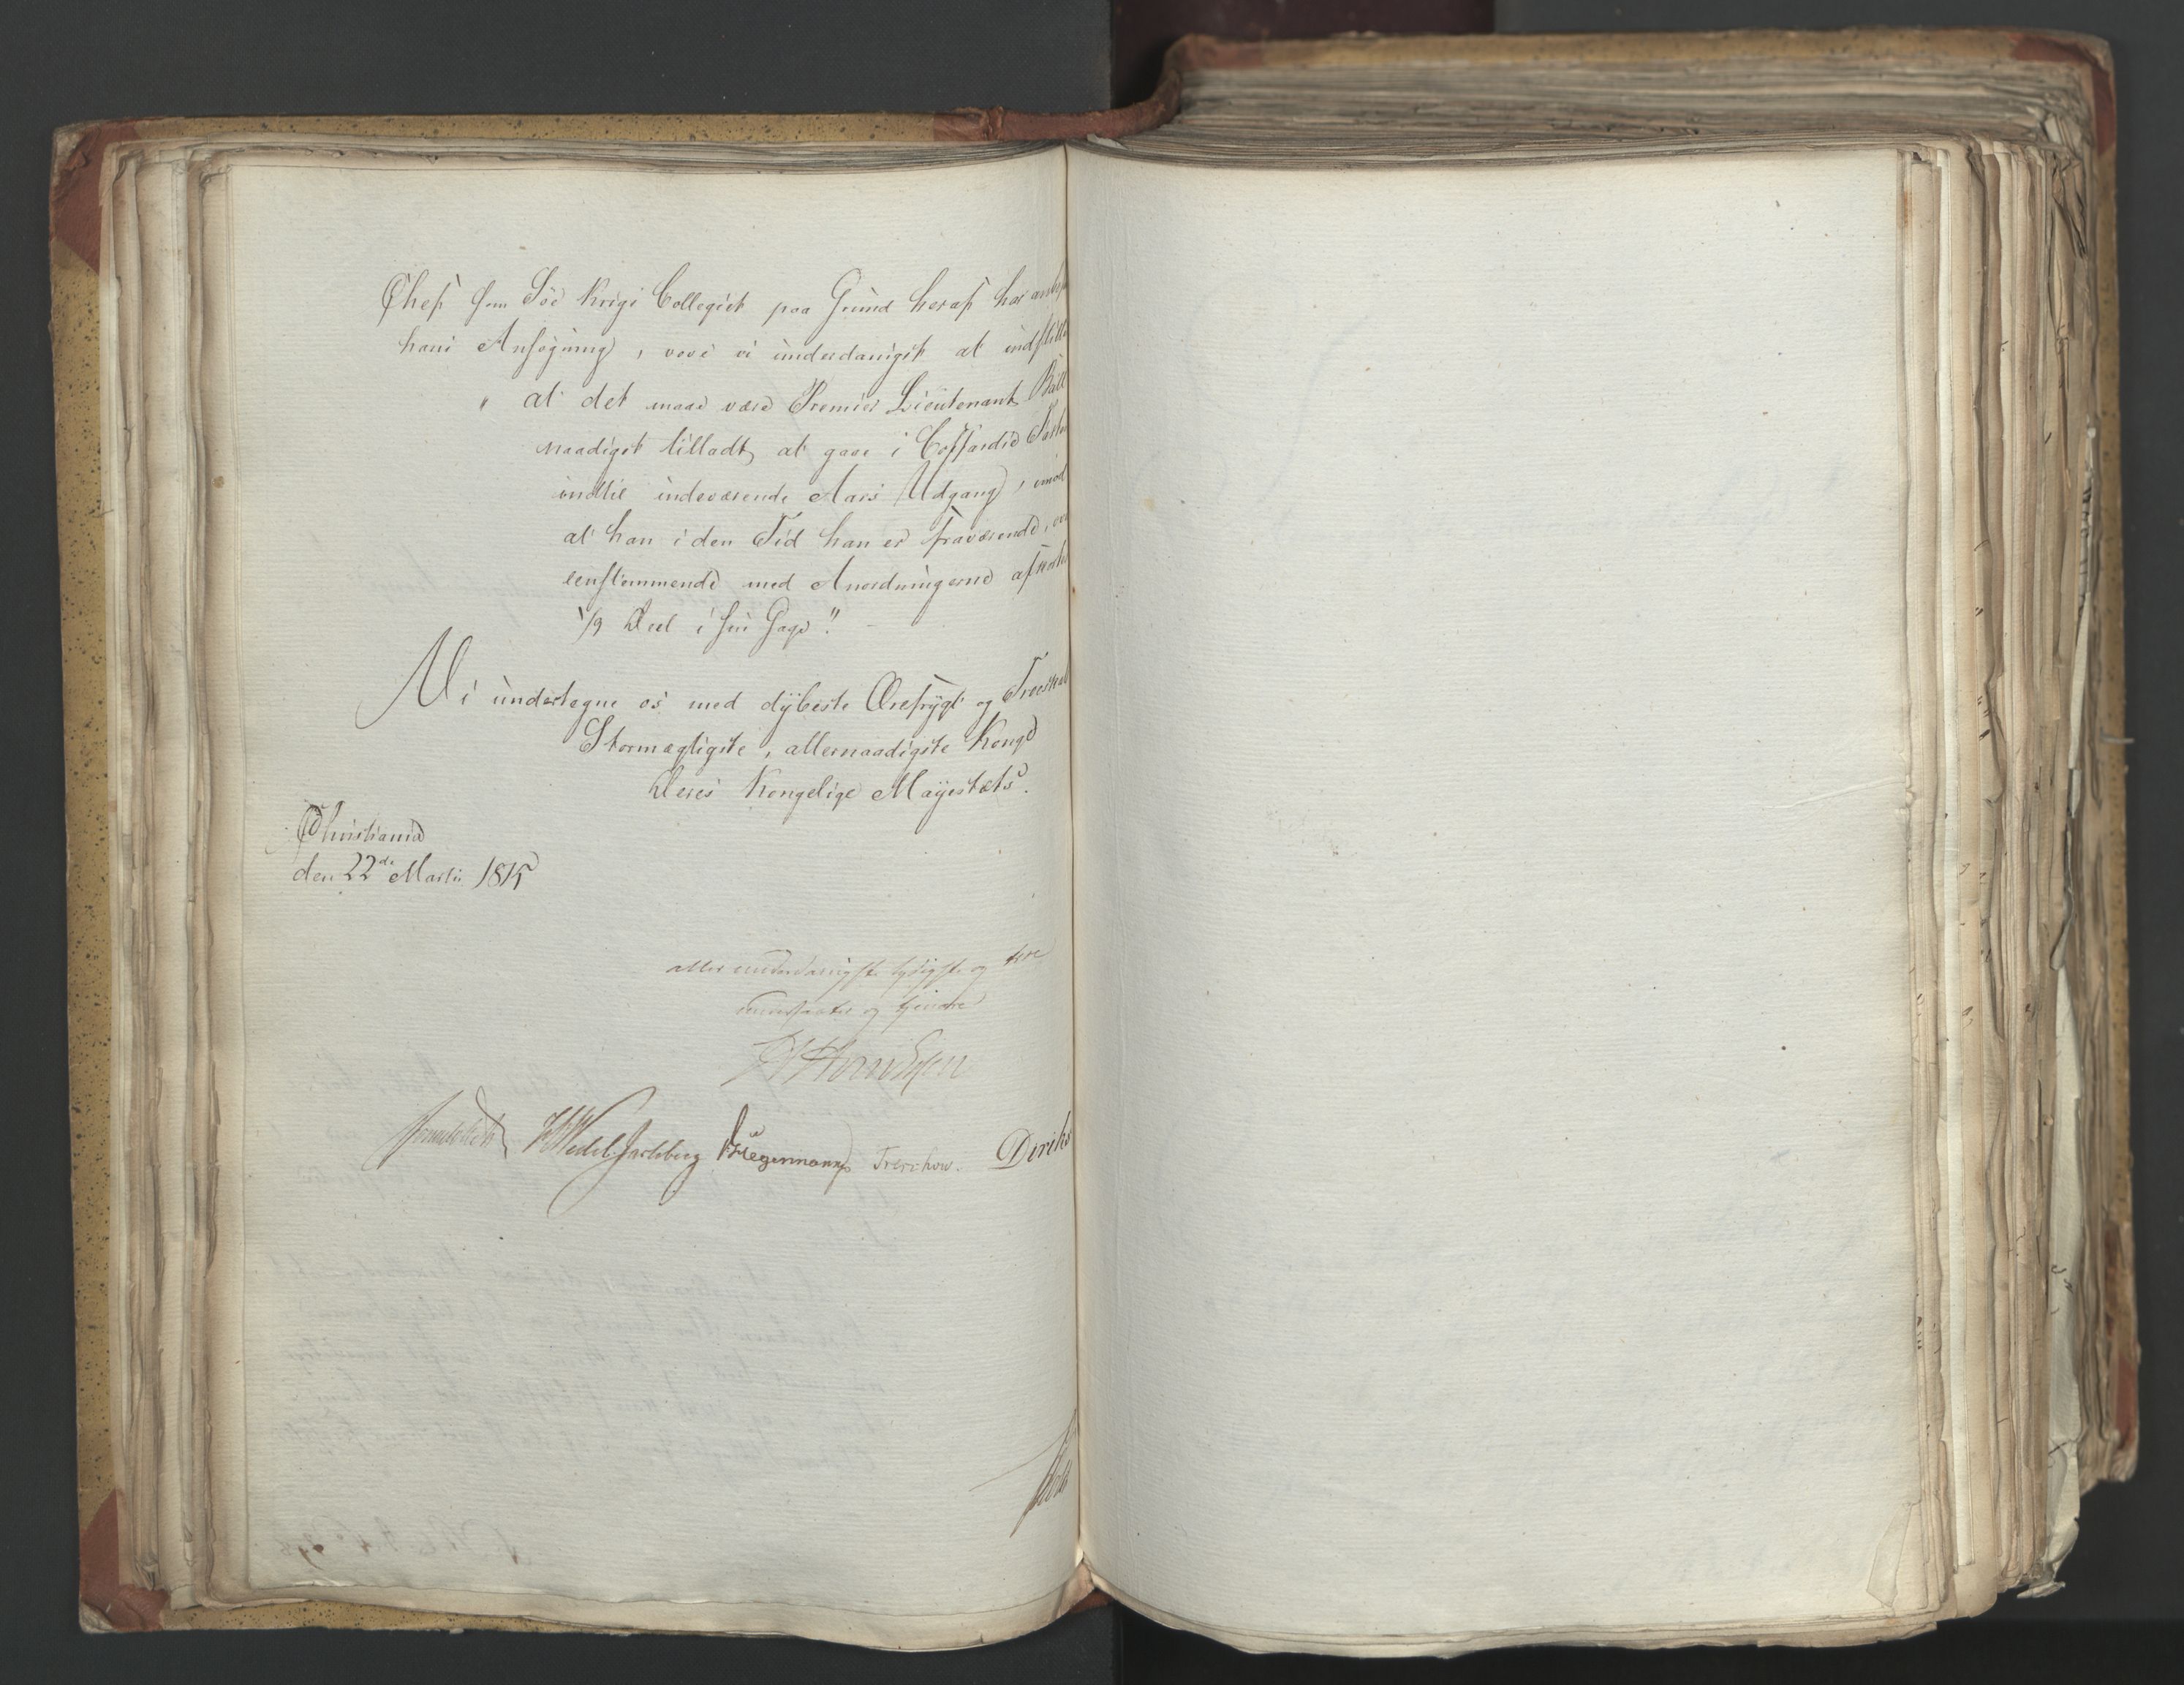 Chef som Söe Krigs Collegiet paa Grund heraf har
hans Ansøgning, vove vi underdanigst at indstille
„ at det maae være Premier Lieutenant Bull
naadigst tilladt, at gaae i Coffardie Farten
indtil indeværende Aars Udgang, imod
at han i den Tid han er fraværende, ov
eenstemmende med Anordningerne afstaaer
1/9 Deel i sin Gage".
Vi undertegne os med dybeste Ærefrygt og Troeskab
Stormægtigste, allernaadigste Konge
Deres Kongelige Mayestæts.
Christiania
den 22de Martii 1815
aller underdanigste lydigste og troe
undersaatter og tjenere
Sommerhielm HWedel Jarlsberg DHegermann Treschow. Diriks